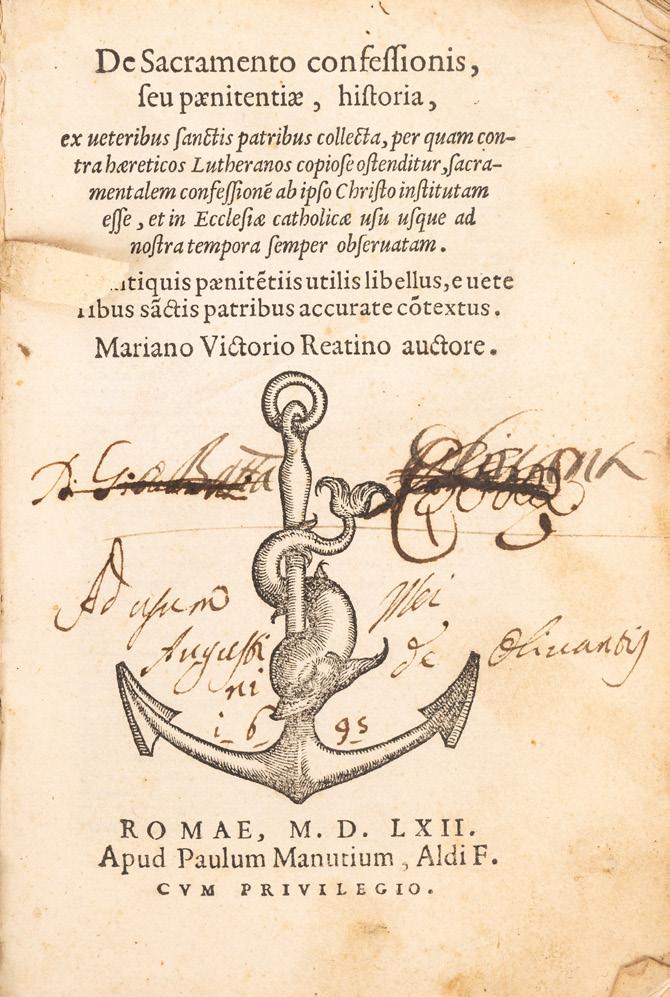 De Sacramento confeſſionis,
ſeu pænitentiæ, hiſtoria,
ex ueteribus ſanctis patribus collecta, per quam con-
tra hæreticos Lutheranos copioſe oſtenditur, ſacra-
mentalem confeſſionē ab ipſo Chriſto inſtitutam
eſſe, et in Eccleſiæ catholicæ uſu uſque ad
noſtra tempora ſemper obſeruatam.
pænitētiis utilis libellus, e uete
ribus sāctis patribus accurate cōtextus.
Mariano Victorio Reatino auctore.
Ad usum Mei
Augusti
ni de Oliuantis
i 6 9 5
ROMAE, M. D. LXII.
Apud Paulum Manutium, Aldi F.
CVM PRIVILEGIO.